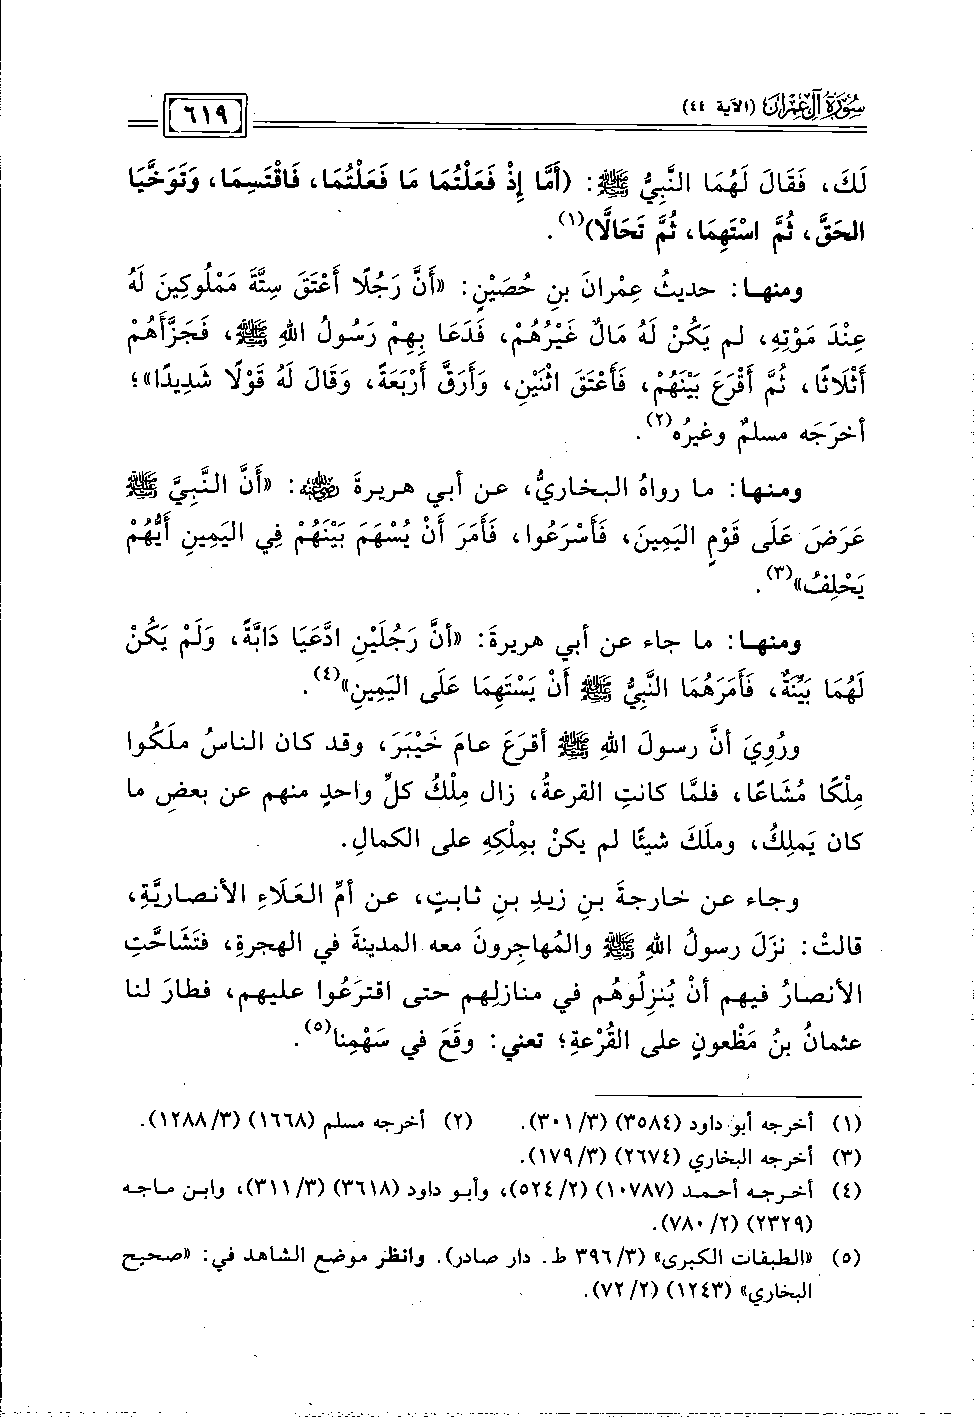 سُورَةُ آلِ عِمْرَانَ (الآية ٤٤)
٦١٩
لَكَ، فَقَالَ لَهُمَا النَّبِيُّ ﷺ: (أَمَّا إِذْ فَعَلْتُمَا مَا فَعَلْتُمَا، فَاقْتَسِمَا، وَتَوَخَّيَا
الحَقَّ، ثُمَّ اسْتَهِمَا، ثُمَّ تَحَالَّا)(١).
ومنها: حديثُ عِمْرانَ بنِ حُصَيْنٍ: «أَنَّ رَجُلًا أَعْتَقَ سِتَّةَ مَمْلُوكِينَ لَهُ
عِنْدَ مَوْتِهِ، لم يَكُنْ لَهُ مَالٌ غَيْرُهُمْ، فَدَعَا بِهِمْ رَسُولُ اللهِ ﷺ، فَجَزَّأَهُمْ
أَثْلَاثًا، ثُمَّ أَقْرَعَ بَيْنَهُمْ، فَأَعْتَقَ اثْنَيْنِ، وَأَرَقَّ أَرْبَعَةً، وَقَالَ لَهُ قَوْلًا شَدِيدًا»؛
أخرَجَه مسلمٌ وغيرُه(٢).
ومنها: ما رواهُ البخاريُّ، عن أبي هريرةَ رضي الله عنه: «أَنَّ النَّبِيَّ ﷺ
عَرَضَ عَلَى قَوْمٍ اليَمِينَ، فَأَسْرَعُوا، فَأَمَرَ أَنْ يُسْهَمَ بَيْنَهُمْ فِي اليَمِينِ أَيُّهُمْ
يَحْلِفُ»(٣).
ومنها: ما جاء عن أبي هريرةَ: «أَنَّ رَجُلَيْنِ ادَّعَيَا دَابَّةً، وَلَمْ يَكُنْ
لَهُمَا بَيِّنَةٌ، فَأَمَرَهُمَا النَّبِيُّ ﷺ أَنْ يَسْتَهِمَا عَلَى اليَمِينِ»(٤).
ورُوِيَ أنَّ رسولَ اللهِ ﷺ أقرَعَ عامَ خَيْبَرَ، وقد كان الناسُ ملَكُوا
مِلْكًا مُشَاعًا، فلمَّا كانتِ القرعةُ، زال مِلْكُ كلِّ واحدٍ منهم عن بعضِ ما
كان يَملِكُ، وملَكَ شيئًا لم يكنْ بمِلْكِهِ على الكمالِ.
وجاء عن خارجةَ بنِ زيدِ بنِ ثابتٍ، عن أمِّ العَلَاءِ الأنصاريَّةِ،
قالتْ: نزَلَ رسولُ اللهِ ﷺ والمُهاجِرونَ معه المدينةَ في الهجرةِ، فتَشَاحَّتِ
الأنصارُ فيهم أنْ يُنزِلُوهُم في منازلِهم حتى اقترَعُوا عليهم، فطارَ لنا
عثمانُ بنُ مَظْعونٍ على القُرْعةِ؛ تعني: وقَعَ في سَهْمِنا(٥).
(١) أخرجه أبو داود (٣٥٨٤) (٣٠١/٣). (٢) أخرجه مسلم (١٦٦٨) (١٢٨٨/٣).
(٣) أخرجه البخاري (٢٦٧٤) (١٧٩/٣).
(٤) أخرجه أحمد (١٠٧٨٧) (٥٢٤/٢)، وأبو داود (٣٦١٨) (٣١١/٣)، وابن ماجه
(٢٣٢٩) (٧٨٠/٢).
(٥) «الطبقات الكبرى» (٣٩٦/٣ ط. دار صادر). وانظر موضع الشاهد في: «صحيح
البخاري» (١٢٤٣) (٧٢/٢).